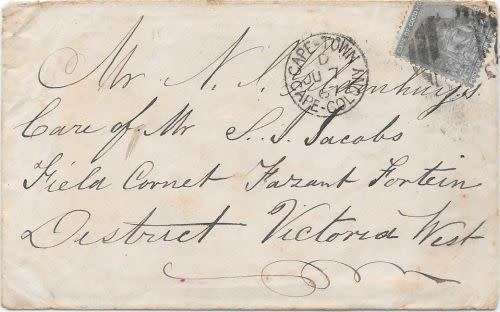 CAPE-TOWN AND
CAPE-COL
D
JU 7
67
Mr N. J.
Care of Mr S. J. Jacobs
Field Cornet Fazant Fontein
District Victoria West